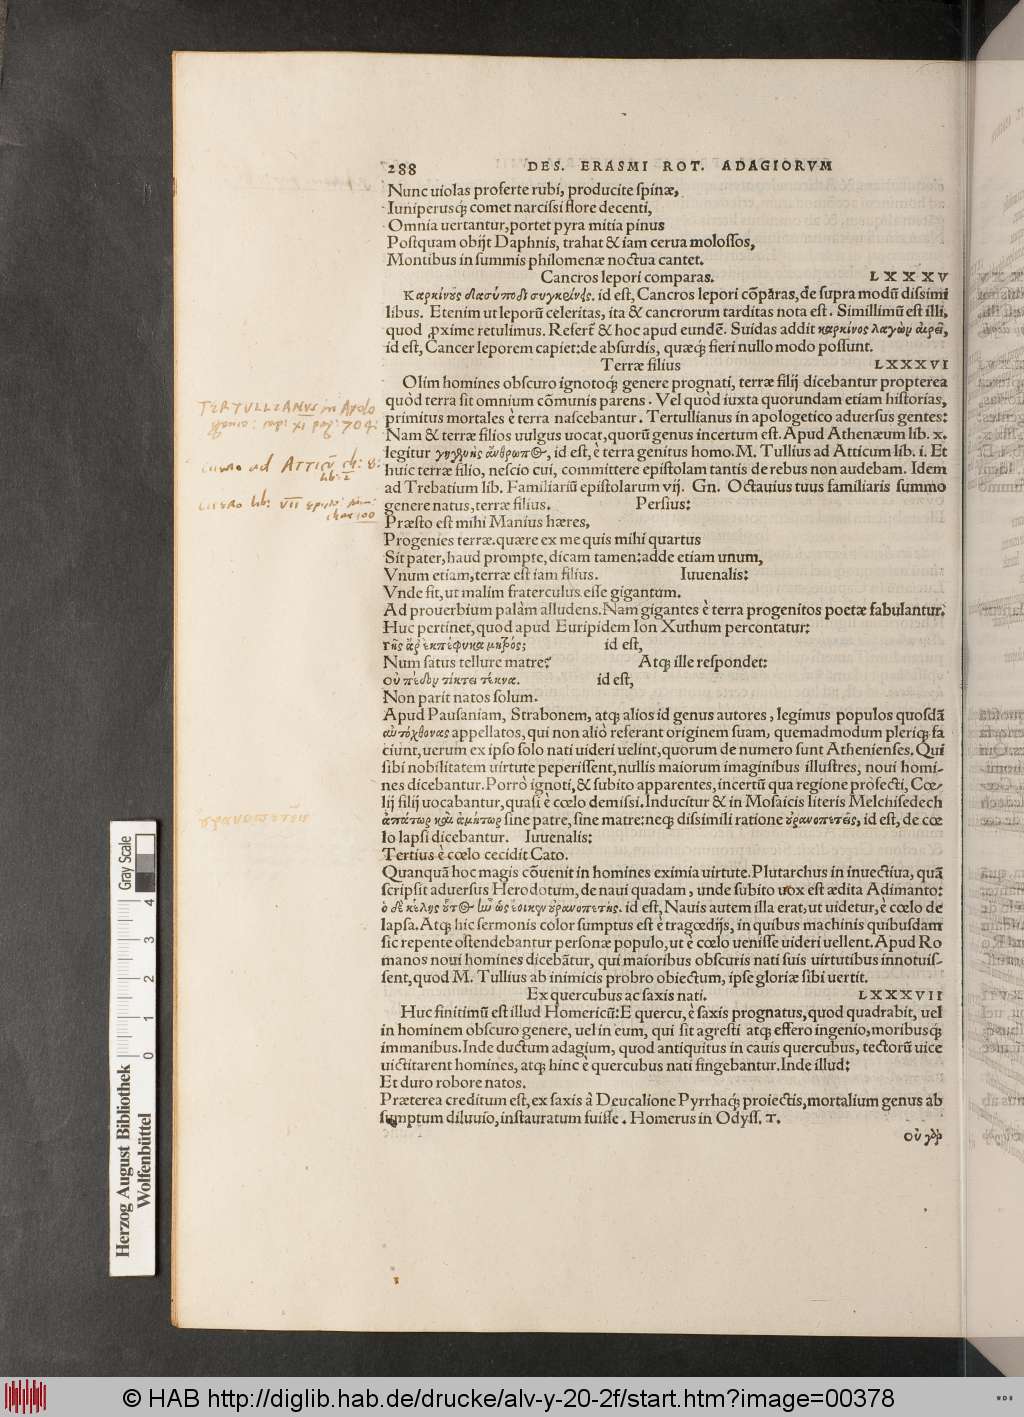 288 DES. ERASMI ROT. ADAGIORVM
Nunc uiolas proferte rubi, producite ſpinæ,
Iuniperusq́; comet narciſsi flore decenti,
Omnia uertantur, portet pyra mitia pinus
Poſtquam obijt Daphnis, trahat & iam cerua moloſſos,
Montibus in ſummis philomenæ noctua cantet.
Cancros lepori comparas. LXXXV
Καρκίνες δασύποδι συγκείνες. id eſt, Cancros lepori cõparas, de ſupra modũ diſsimi
libus. Etenim ut leporũ celeritas, ita & cancrorum tarditas nota eſt. Simillimũ eſt illi,
quod ꝓxime retulimus. Refert̃ & hoc apud eundẽ. Suidas addit καρκίνος λαγὼν αἱρεῖ,
id eſt, Cancer leporem capiet: de abſurdis, quæq́; fieri nullo modo poſſunt.
Terræ filius LXXXVI
Olim homines obſcuro ignotoq́; genere prognati, terræ filij dicebantur propterea
quòd terra ſit omnium cõmunis parens. Vel quòd iuxta quorundam etiam hiſtorias,
primitus mortales è terra naſcebantur. Tertullianus in apologetico aduerſus gentes:
Nam & terræ filios uulgus uocat, quorũ genus incertum eſt. Apud Athenæum lib. x.
legitur γηγενὴς ἄνθρωπος, id eſt, è terra genitus homo. M. Tullius ad Atticum lib. i. Et
huic terræ filio, neſcio cui, committere epiſtolam tantis de rebus non audebam. Idem
ad Trebatium lib. Familiariũ epiſtolarum vij. Gn. Octauius tuus familiaris ſummo
genere natus, terræ filius. Perſius:
Præſto eſt mihi Manius hæres,
Progenies terræ. quære ex me quis mihi quartus
Sit pater, haud prompte, dicam tamen: adde etiam unum,
Vnum etiam, terræ eſt iam filius. Iuuenalis:
Vnde fit, ut malim fraterculus eſſe gigantum.
Ad prouerbium palàm alludens. Nam gigantes è terra progenitos poetæ fabulantur.
Huc pertinet, quod apud Euripidem Ion Xuthum percontatur:
Γῆς ἆρ᾽ ἐκπέφυκα μητρός; id eſt,
Num ſatus tellure matre? Atq; ille reſpondet:
Οὐ πέδον τίκτει τέκνα. id eſt,
Non parit natos ſolum.
Apud Pauſaniam, Strabonem, atq; alios id genus autores, legimus populos quoſdã
αὐτόχθονας appellatos, qui non aliò referant originem ſuam, quemadmodum pleriq; fa
ciunt, uerum ex ipſo ſolo nati uideri uelint, quorum de numero ſunt Athenienſes. Qui
ſibi nobilitatem uirtute peperiſſent, nullis maiorum imaginibus illuſtres, noui homi-
nes dicebantur. Porrò ignoti, & ſubito apparentes, incertũ qua regione profecti, Cœ-
lij filij uocabantur, quaſi è cœlo demiſsi. Inducitur & in Moſaicis literis Melchiſedech
ἀπάτωρ καὶ ἀμήτωρ ſine patre, ſine matre: neq; diſsimili ratione οὐρανοπετεῖς, id eſt, de cœ
lo lapſi dicebantur. Iuuenalis:
Tertius è cœlo cecidit Cato.
Quanquã hoc magis cõuenit in homines eximia uirtute. Plutarchus in inuectiua, quã
ſcripſit aduerſus Herodotum, de naui quadam, unde ſubito uox eſt ædita Adimanto:
ὁ δὲ κέλης οὗτος ἦν ὡς ἔοικεν οὐρανοπετής. id eſt, Nauis autem illa erat, ut uidetur, è cœlo de
lapſa. Atq; hic ſermonis color ſumptus eſt è tragœdijs, in quibus machinis quibuſdam
ſic repente oſtendebantur perſonæ populo, ut è cœlo ueniſſe uideri uellent. Apud Ro
manos noui homines dicebãtur, qui maioribus obſcuris nati ſuis uirtutibus innotuiſ-
ſent, quod M. Tullius ab inimicis probro obiectum, ipſe gloriæ ſibi uertit.
Ex quercubus ac ſaxis nati. LXXXVII
Huc finitimũ eſt illud Homericũ: E quercu, è ſaxis prognatus, quod quadrabit, uel
in hominem obſcuro genere, uel in eum, qui ſit agreſti atq; effero ingenio, moribusq́;
immanibus. Inde ductum adagium, quod antiquitus in cauis quercubus, tectorũ uice
uictitarent homines, atq; hinc è quercubus nati fingebantur. Inde illud:
Et duro robore natos.
Præterea creditum eſt, ex ſaxis à Deucalione Pyrrhaq́; proiectis, mortalium genus ab
ſumptum diluuio, inſtauratum fuiſſe. Homerus in Odyſſ. τ.
οὐ γὰρ
TERTULLIANUS in Apolo
getico: cap: XI pag: 704:
Cicero ad ATTICŪ
lib: 2
Cicero lib: VII
οὐρανοπετεῖς
Gray Scale
0 1 2 3 4
Herzog August Bibliothek
Wolfenbüttel
© HAB http://diglib.hab.de/drucke/alv-y-20-2f/start.htm?image=00378